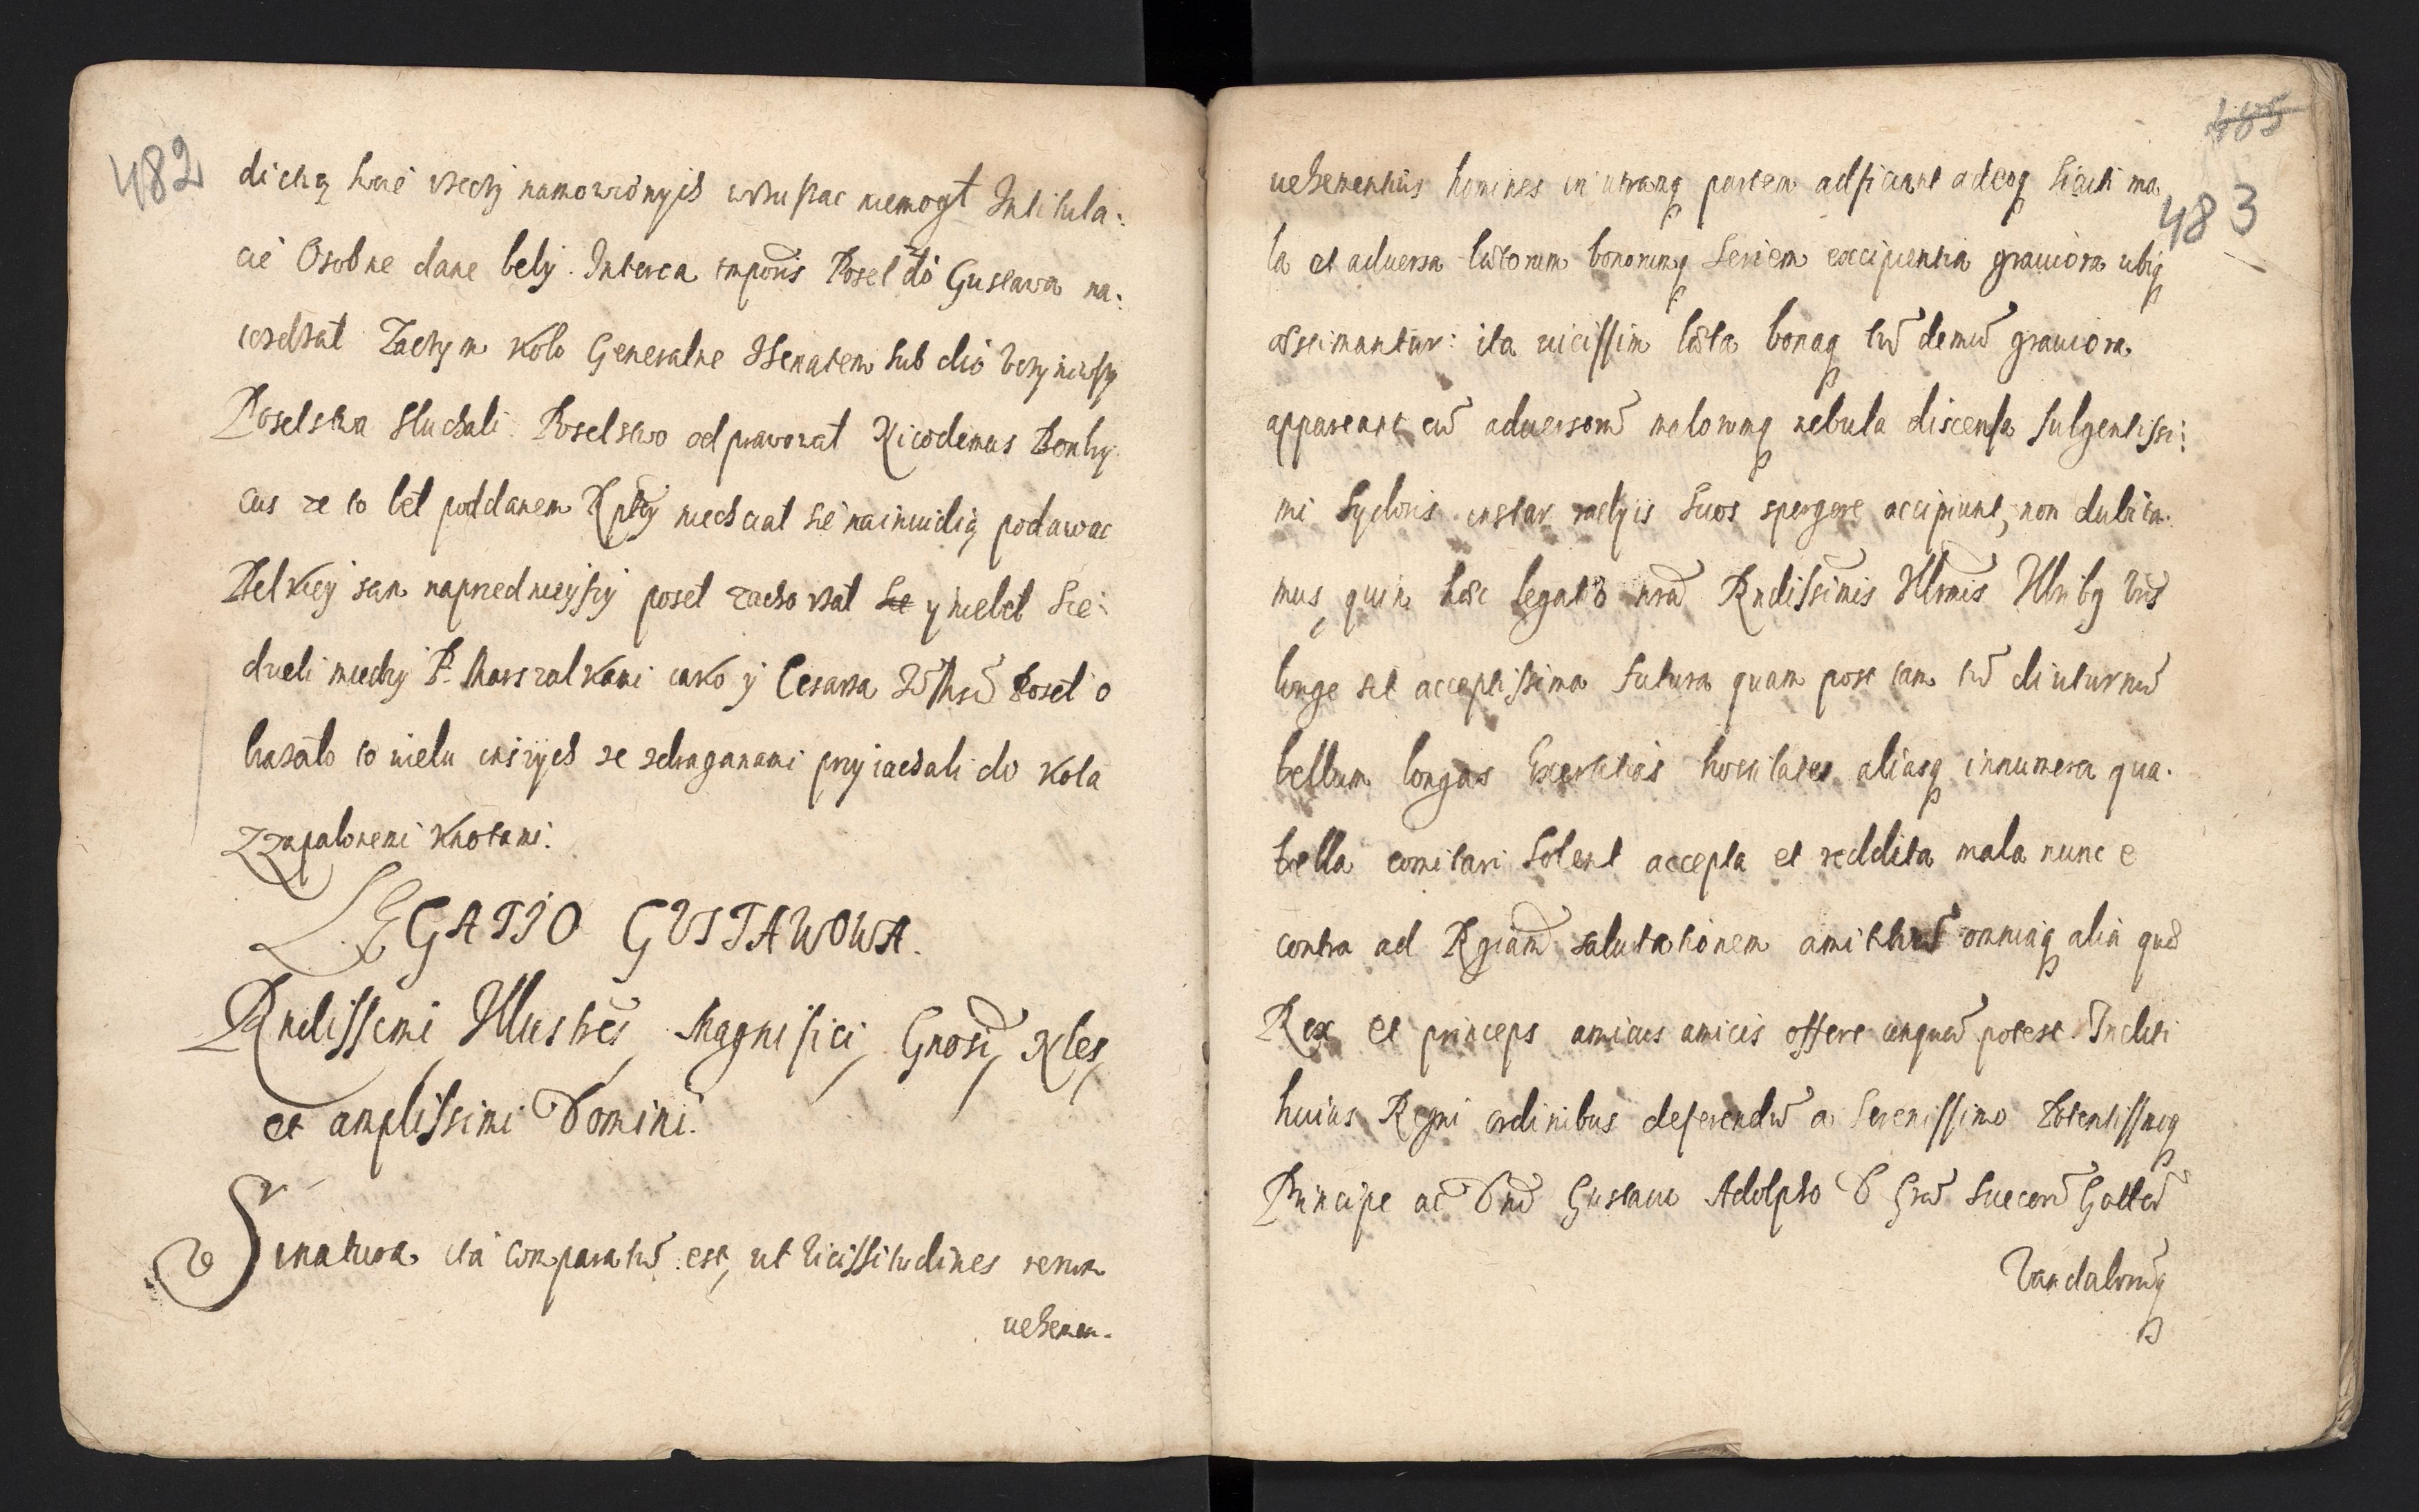 482
dichą swe rzeczÿ namowionÿch wskurac niemogł Intitula:
cie Osobne dane belÿ. Interea tmporis Poseł do Gustawa na:
iezdzał Zaczÿm Koło Generalne Zsenatem sub dio vczÿniwszÿ
Poselstwa słuchali Poselstwo odprawował Nicodemus
cus ze to beł poddanem Rptey niechciał sie nainuidią podawac
Belkieÿ sam naprzednieÿszÿ poseł zachorzał se ÿ niebeł Sie:
dzieli miedzÿ P. Marszałkami iako ÿ Cesarza Poseł o
kazało to wielu inszÿch ze zdraganami przÿiachali do Koła
Zzapalonemi Knotami.
LEGATIO GVSTAWOWA.
Rndissimi Illustres, Magnifici, Gnosi, Nles,
et amplissimi Domini.
Sinatura ita comparatū est, ut vicissitudines rerum
uehemen.
485
483
uehementius homines in utramq partem adficiant adeoq sicuti ma
la et aduersa lætorum bonorumq seriem excipientia grauiora ubiq
æstimantur: ita uicissim læta bonaq tū demū grauiora
appareant cū aduersorū malorumq nebula discensa fulgentissi:
mi Syderis instar radÿis suos spergere accipiunt, non dubita.
mus, quin hæc legatō nrā Rndissimis Illrmis Illribq vris
longe sit acceptissima futura quam post tam tū diuturnū
bellum longas hostilates aliasq innumera qua.
bella comitari solent accepta et reddita mala nunc e
contra ad Rgiam salutationem amithiæ omniaq alia quæ
Rex et princeps amicus amicis offere unquā potest Incliti
huius Regni ordinibus deferendū a Serenissimo Potentissmoq
Principe ac Dnō Gustauo Adolpho D Gra Suecorū Gottū
Vandalorūq